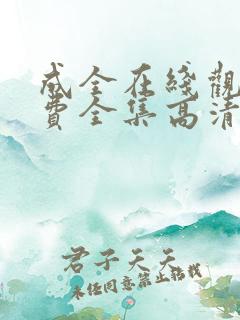 成全在线觀
費全集高清
君子天天
未经同意禁止转载